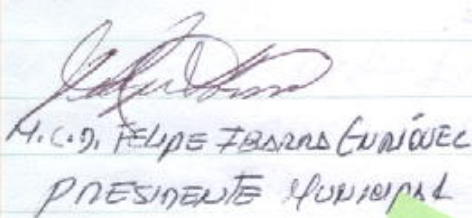 M.C.D. FELIPE IBARRA ENRÍQUEZ
PRESIDENTE MUNICIPAL